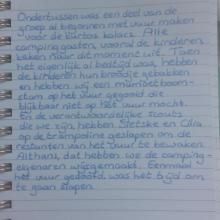 Ondertussen was een deel van de
groep al begonnen met vuur maken
voor de kürtos kalacs. Alle
campinggasten, vooral de kinderen,
keken naar dit moment uit. Toen
het eigenlijk al bedtijd was, hebben
de kinderen hun broodje gebakken
en hebben wij een mini boom-
stam op het vuur gegooid die
blijkbaar niet op het vuur mocht.
En de verantwoordelijke scouts
die we zijn, hebben Sietske en
op de trampoline geslapen om de
restanten van het vuur te bewaken.
Althans, dat hebben we de camping-
eigenaren wijsgemaakt. Eenmaal
het vuur gedoofd, was het tijd om
te gaan slapen.